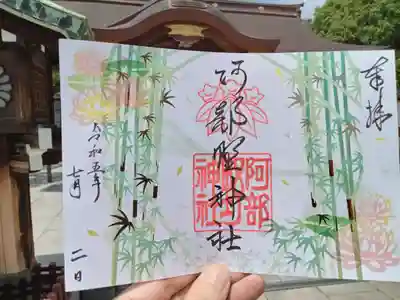 奉拝
阿部野神社
阿部野神社
令和五年
七月二日